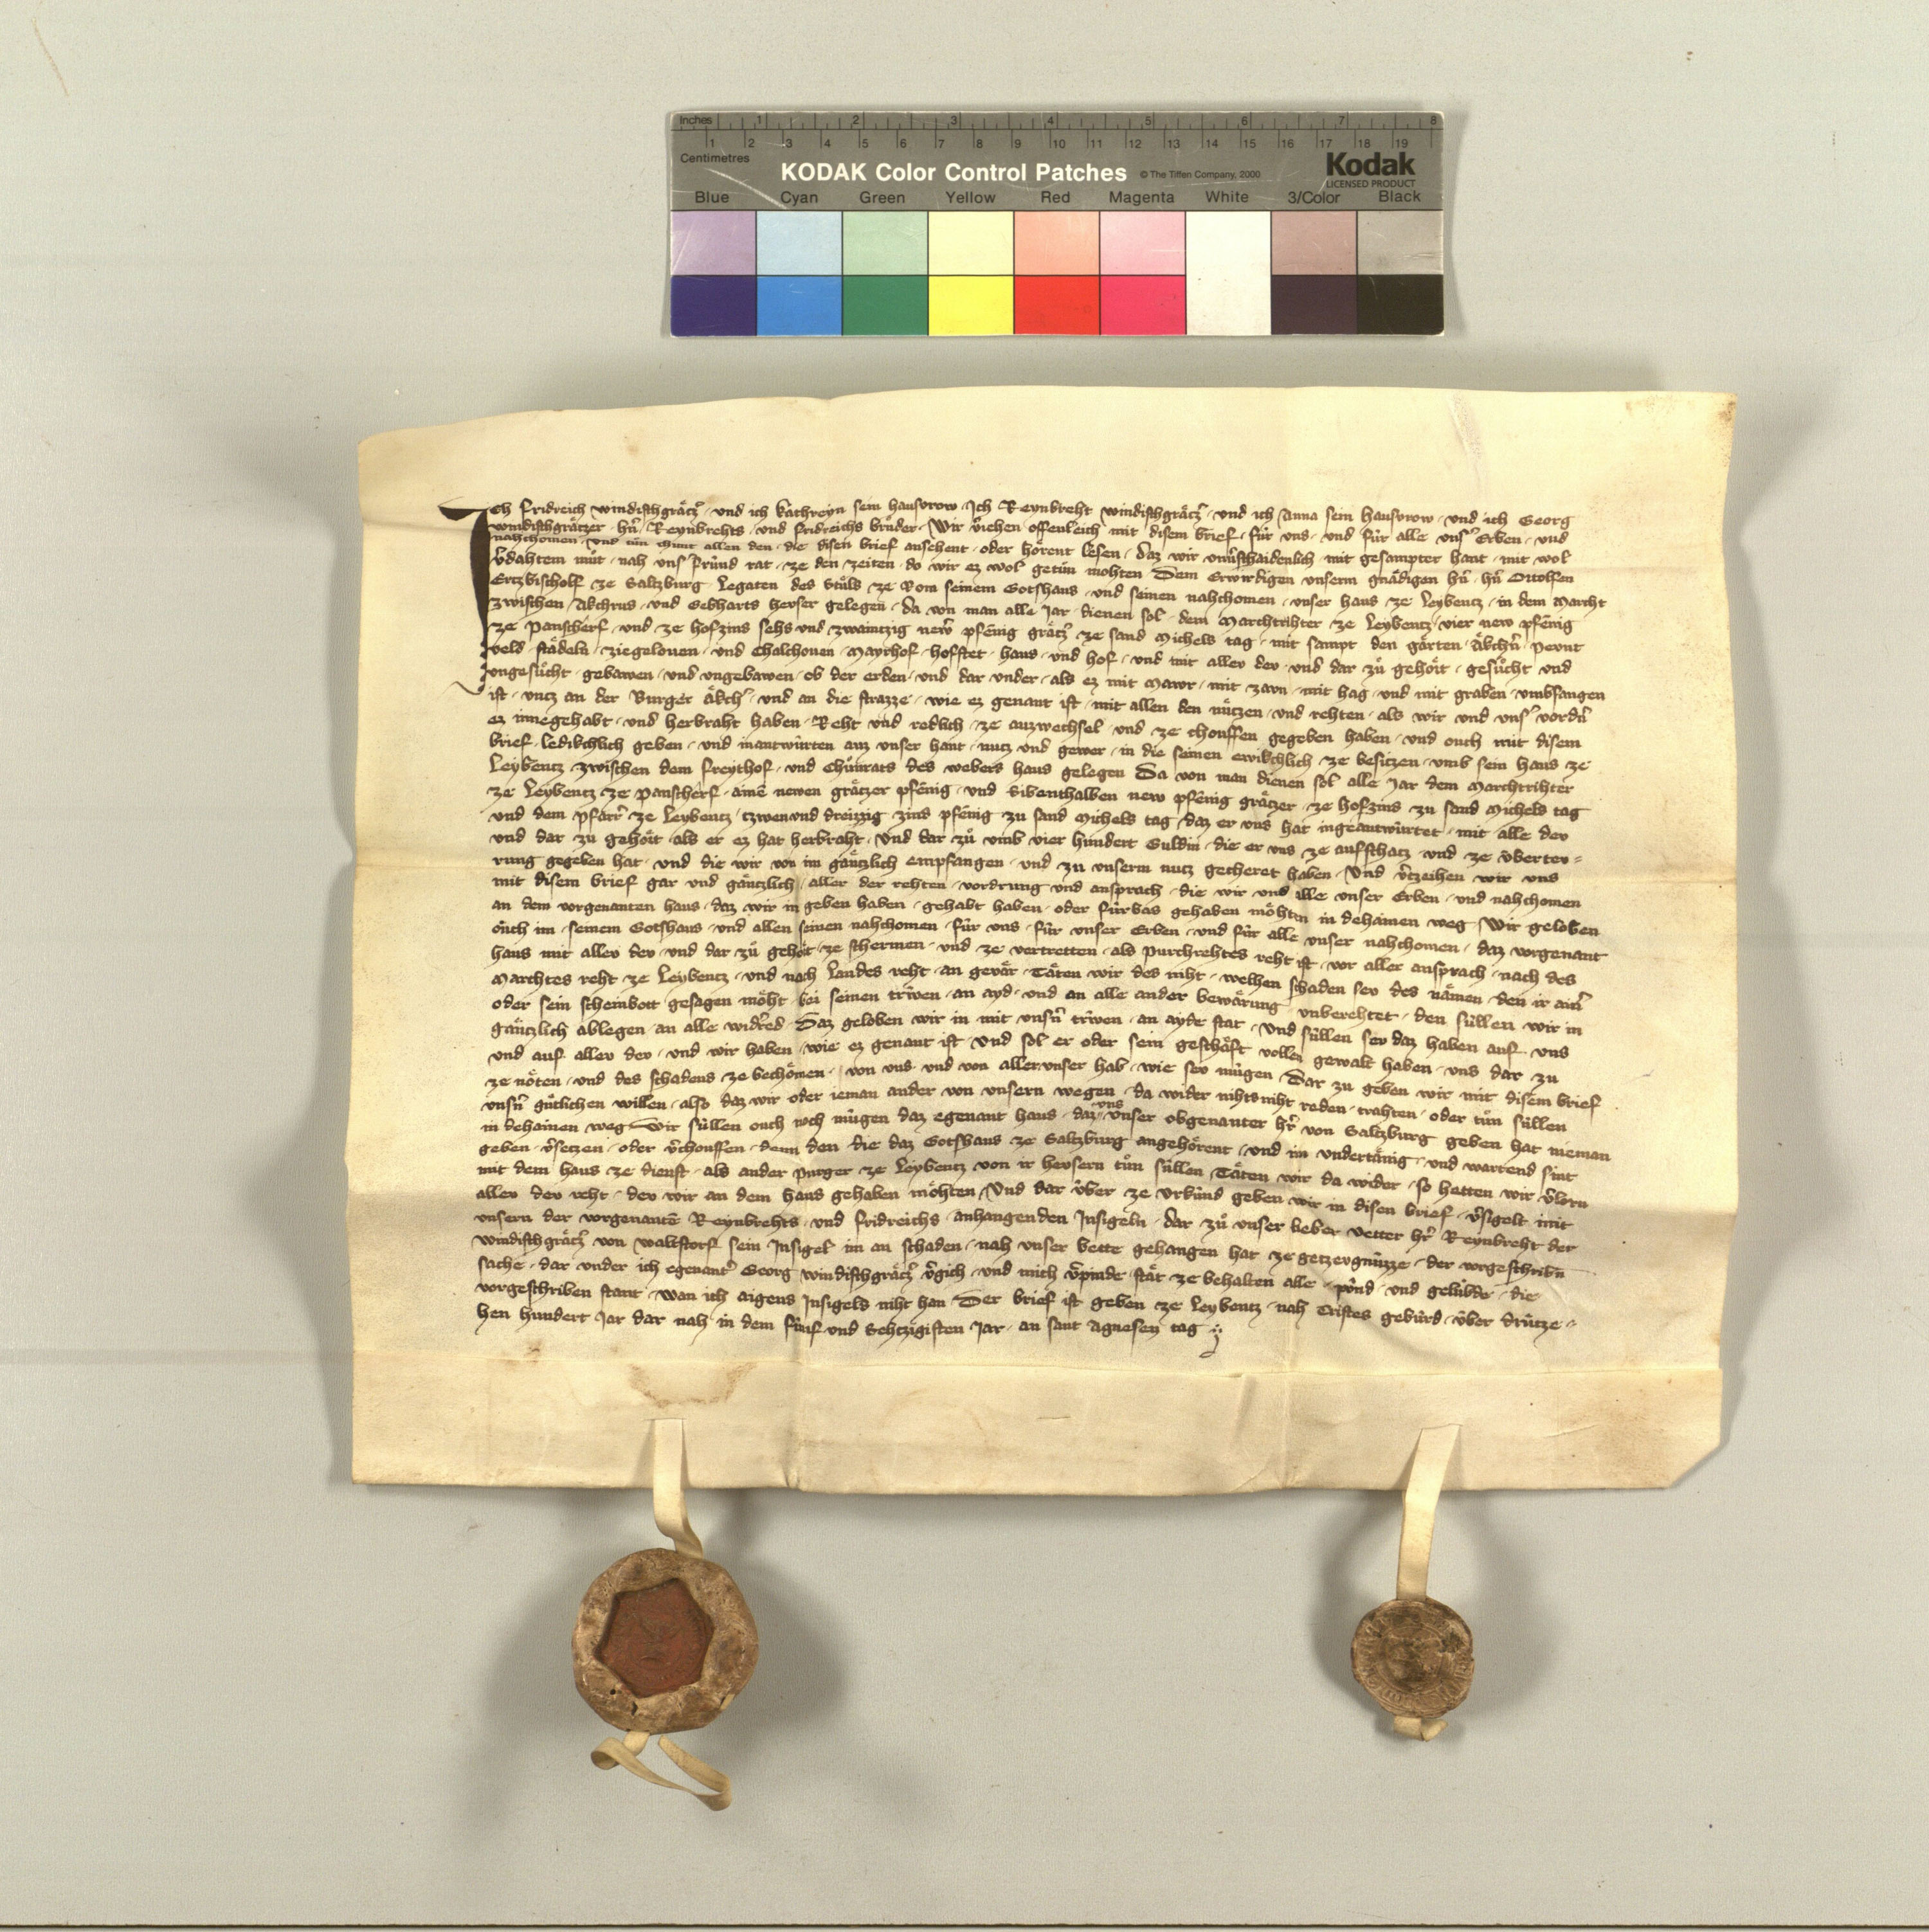 Inches 1 2 3 4 5 6 7 8
1 2 3 4 5 6 7 8 9 10 11 12 13 14 15 16 17 18 19
Centimetres
KODAK Color Control Patches © The Tiffen Company, 2000 Kodak
LICENSED PRODUCT
Blue Cyan Green Yellow Red Magenta White 3/Color Black
Ich Fridreich windischgrätz̄ · und ich kathreyn sein hausvrow · Ich Reynbreht windischgrätz̄ · und ich Anna sein hausvrow · und ich Georg
windischgrätzer · hn̄ Reynbrehts · und fridreichs brůder · Wir v̄iehen offenleich mit disem brief · für uns · und für alle uns̄ Erben · und
nahchomen · und tůn chunt allen den · die disen brief ansehent · oder hörent lesen · daz wir unv̄schaidenlich mit gesampter hant · mit wol
v̄dahtem můt · nah uns̄ frůnd rat · ze den zeiten · do wir ez wol getůn mohten Dem Erwirdigen unserm gnädigen hn̄ · hn̄ Ortolfen
Ertzbischolf ze Saltzburg Legaten des Stůls ze Rom seinem Gotshaus · und seinen nahchomen · unser haus ze Leybentz · in dem Marcht
zwischen und Gebharts hevser gelegen · da von man alle Jar dienen sol · dem Marchtrihter ze Leybentz · vier new pfēnig
ze Panscherf · und ze hofzins sehs und zwaintzig new̄ pfēnig grätz̄ ze sand Michels tag · mit sampt den gärten · Äkchn̄ · pevnt
veld · städeln · ziegelouen · und Chalchouen · Mayrhof · hofstet · haus · und hof · und mit allev dev · und dar zů gehört · gesůcht und
ungesůcht · gebawen · und ungebawen · ob der erden · und dar under · als ez mit Mawr · mit zavn · mit hag · und mit graben · umbfangen
ist · uncz an der Burger äkch̄ · und an die strazze · wie ez genant ist · mit allen den nützen · und rehten · als wir und uns̄ vordn̄
ez innegehabt · und herbraht haben · Reht und redlich · ze auzwechsel · und ze chouffen gegeben haben · und ouch mit disem
brief · ledikchlich geben · und inantwürten auz unser hant · nutz und gewer · in die seinen ewikchlich · ze besitzen · umb sein haus ze
Leybentz · zwischen dem freythof · und Chůnrats des webers haus gelegen Da von man dienen sol alle Jar dem Marchtrihter
ze Leybentz ze Panscherf · ainē newen grätzer pfēnig · und Sibenthalben new pfēnig grätzer · ze hofzins zu sand Michels tag
und dem pfarr̄ ze Leybentz / tzwen und dreizzig zins pfēnig zu sand Michels tag · daz er uns hat ingeantwürtet · mit alle dev
und dar zu gehört · als er ez hat herbraht · Und dar zů umb vier hundert Guldin · die er uns ze aufschatz · und ze übertev=
rung gegeben hat · und die wir von im gäntzlich empfangen · und zu unserm nutz gecheret haben · Und v̄tzeihen wir uns
mit disem brief gar und gäntzlich / aller der rehten · vordrung und ansprach · die wir und alle unser Erben · und nahchomen
an dem vorgenanten haus · daz wir in geben haben · gehabt haben · oder fürbas gehaben möhten in dehainen weg · Wir geloben
ouch im · seinem Gotshaus · und allen seinen nahchomen · für uns · für unser Erben · und für alle unser nahchomen · daz vorgenant
haus mit allev dev · und dar zů gehört · ze schermen · und ze vertretten · als purchrehtes reht ist · vor aller ansprach · nach des
Marchtes reht ze Leybentz · und nach Landes reht · an gevär · Täten wir des niht · welhen schaden sev des nämen · den ir ainr̄
oder sein scheinbott gesagen möht · bei seinen trwen · an ayd · und an alle ander bewärung unberehtet · den süllen wir in
gäntzlich ablegen · an alle widr̄red · Daz geloben wir in mit unsn̄ trwen · an ayde stat · Und süllen sev daz haben auf uns
und auf allev dev · und wir haben · wie ez genant ist Und sol er oder sein geschäft vollen gewalt haben · uns dar zu
ze nöten · und des schadens ze bechömen · von uns · und von aller unser hab · wie sev mügen Dar zu geben wir mit disem brief
unsn̄ gütlichen willen · also daz wir oder ieman ander von unsern wegen · da wider nihtsniht reden · trahten · oder tůn süllen
in dehainen weg Wir süllen ouch noch mügen daz egenant haus · daz uns unser obgenanter hr̄ von Saltzburg geben hat nieman
geben · v̄setzen · oder v̄chouffen · denn den die daz Gotshaus ze Saltzburg angehörent · und im undertänig · und wartend sint
mit dem haus ze dienst · als ander purger ze Leybentz von ir hevsern tůn süllen Täten wir da wider · so hetten wir v̄lorn
allev dev reht · dev wir an dem haus gehaben möhten / Und dar über ze urkünd geben wir in disen brief · v̄sigelt mit
unsern der vorgenantē Reynbrehts · und fridreichs · anhangenden Insigeln · dar zů unser lieber vetter hr̄ Reynbreht der
windischgrätz̄ von waltstorf sein Insigel im an schaden · nah unser bette gehangen hat ze getzevgnüzze · der vorgeschribn̄
sache · dar under ich egenant̄ Georg windischgrätz̄ v̄gich · und mich v̄pinde stät ze behalten alle pünd · und gelübde · die
vorgeschriben stant · wan ich aigens Insigels niht han Der brief ist geben ze Leybentz · nah Cristes gebürd · über drütze=
hen hundert Jar dar nah in dem fünf und Sehtzigisten Jar · an sant Agnesen tag